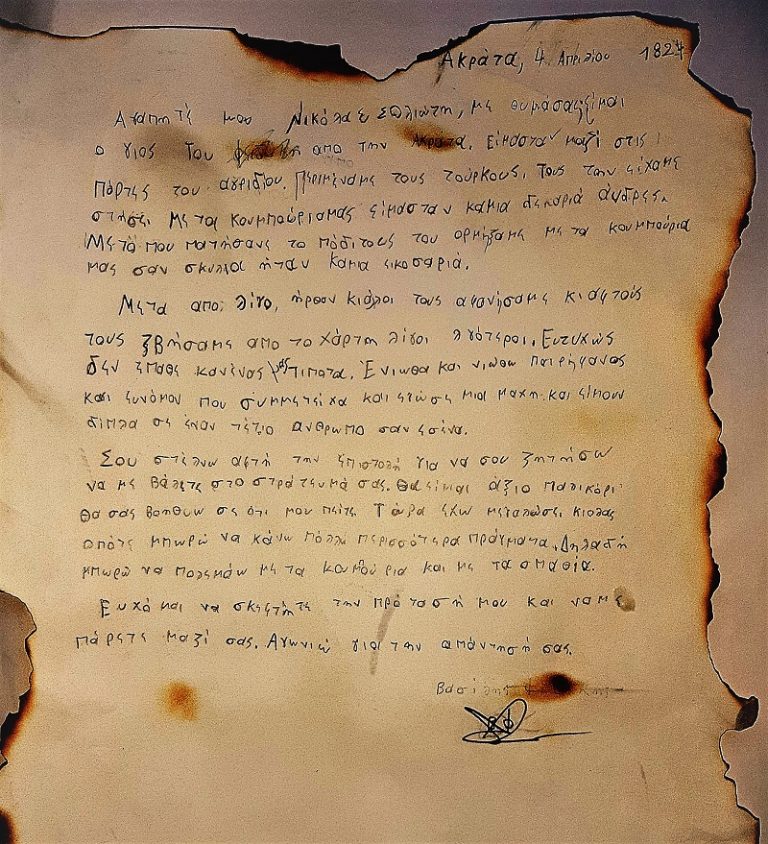 Ακράτα, 4 Απριλίου 1827
Αγαπητέ μου Νικόλαε Σολιώτη, με θυμάσαι; είμαι
ο γιος του από την Ακράτα. Είμασταν μαζί στις
Πόρτες του αγριδίου. Περιμέναμε τους τούρκους. Τους την είχαμε
στήσει με τα κουμπούρια μας είμασταν καμια δεκαριά άνδρες.
Μετά που πατήσανε το πόδι τους του ορμήξαμε με τα κουμπούρια
μας σαν σκυλλοι ήταν καμια εικοσαριά.
Μετα απο λίγο, ήρθαν κι άλλοι τους αφανήσαμε κι αφτούς
τους ξβήσαμε απο το χάρτη λίγοι λγότεροι. Ευτυχώς
δεν έπαθε κανένας μας τίποτα. Ένιωθα και νιώθω παιρήφανος
και ξυνάμαν που συμμετείχα και εγώ σε μια μάχη και είμουν
δίπλα σε έναν τέτιο ανθρωπο σαν εσένα.
Σου στέλνω αφτή την επιστολή για να σου ζητήσω
να με βάλετε στο στράτευμά σας. Θα είμαι άξιο παλικάρι
θα σας βοηθάω σε ότι μου πείτε. Τώρα έχω μεγαλώσει κιολας
οπότε μπωρώ να κάνω πόλλυ περισσότερα πράγματα. Δηλαδή
μπωρώ να πολεμάω με τα κουμπούρια και με τα σπαθία.
Ευχόμαι να σκεφτήτε την πρότασή μου και να με
πάρετε μαζί σας. Αγωνιώ για την απάντησή σας.
Βασίλης